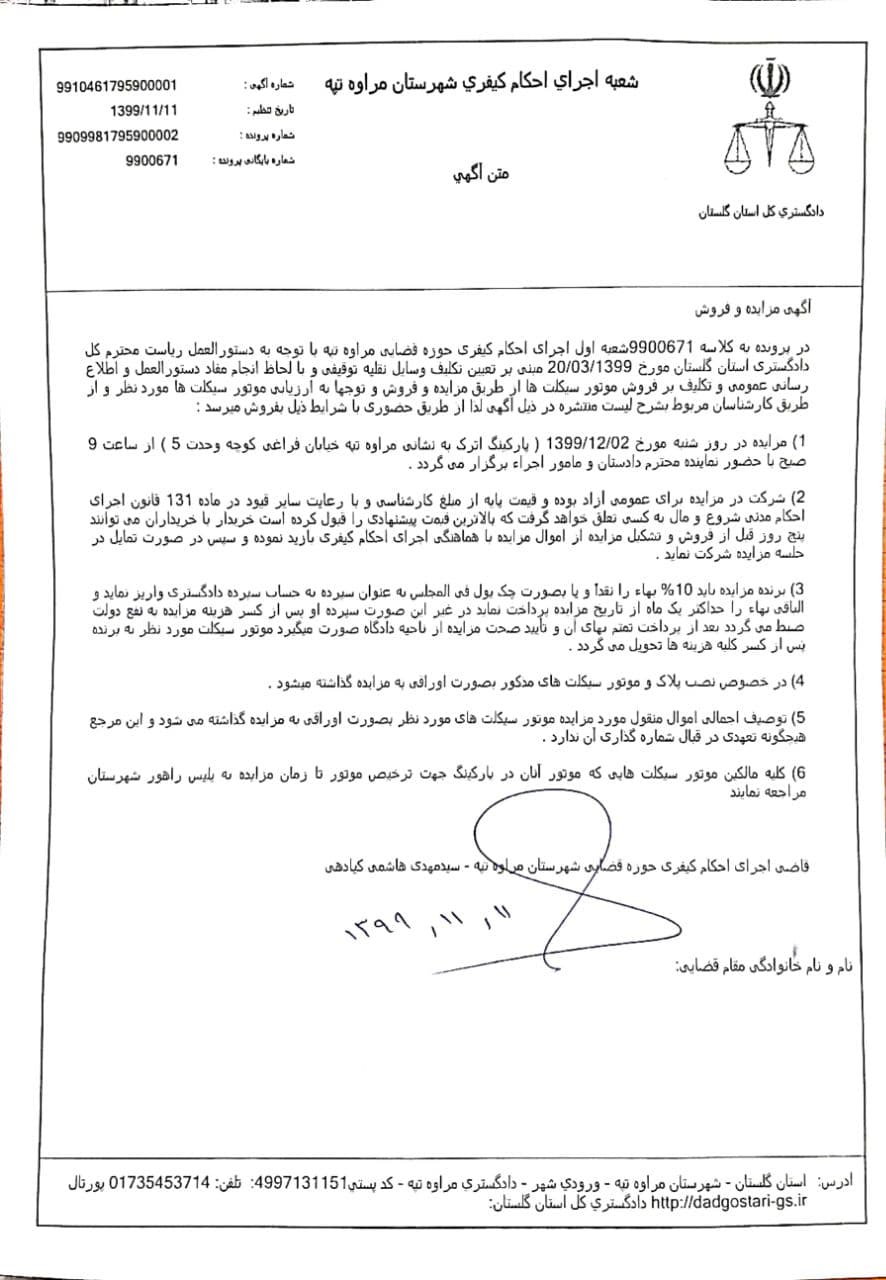 شعبه اجراي احكام كيفري شهرستان مراوه تپه
متن آگهي
شماره آگهی : 9910461795900001
تاریخ تنظیم : 1399/11/11
شماره پرونده : 9909981795900002
شماره بایگانی پرونده : 9900671
دادگستري كل استان گلستان
آگهی مزایده و فروش
در پرونده به کلاسه 9900671شعبه اول اجرای احکام کیفری حوزه قضایی مراوه تپه با توجه به دستورالعمل ریاست محترم کل
دادگستری استان گلستان مورخ 20/03/1399 مبنی بر تعیین تکلیف وسایل نقلیه توقیفی و با لحاظ انجام مفاد دستورالعمل و اطلاع
رسانی عمومی و تکلیف بر فروش موتور سیکلت ها از طریق مزایده و فروش و توجها به ارزیابی موتور سیکلت ها مورد نظر و از
طریق کارشناسان مربوط بشرح لیست منتشره در ذیل آگهی لذا از طریق حضوری با شرایط ذیل بفروش میرسد :
1) مزایده در روز شنبه مورخ 1399/12/02 ( پارکینگ اترک به نشانی مراوه تپه خیابان فراغی کوچه وحدت 5 ) از ساعت 9
صبح با حضور نماینده محترم دادستان و مامور اجراء برگزار می گردد .
2) شرکت در مزایده برای عمومی آزاد بوده و قیمت پایه از مبلغ کارشناسی و با رعایت سایر قیود در ماده 131 قانون اجرای
احکام مدنی شروع و مال به کسی تعلق خواهد گرفت که بالاترین قیمت پیشنهادی را قبول کرده است خریدار یا خریداران می توانند
پنج روز قبل از فروش و تشکیل مزایده از اموال مزایده با هماهنگی اجرای احکام کیفری بازید نموده و سپس در صورت تمایل در
جلسه مزایده شرکت نماید .
3) برنده مزایده باید 10% بهاء را نقداً و یا بصورت چک پول فی المجلس به عنوان سپرده به حساب سپرده دادگستری واریز نماید و
الباقی بهاء را حداکثر یک ماه از تاریخ مزایده پرداخت نماید در غیر این صورت سپرده او پس از کسر هزینه مزایده به نفع دولت
ضبط می گردد بعد از پرداخت تمتم بهای آن و تأیید صحت مزایده از ناحیه دادگاه صورت میگیرد موتور سیکلت مورد نظر به برنده
پس از کسر کلیه هزینه ها تحویل می گردد .
4) در خصوص نصب پلاک و موتور سیکلت های مذکور بصورت اوراقی به مزایده گذاشته میشود .
5) توصیف اجمالی اموال منقول مورد مزایده موتور سیکلت های مورد نظر بصورت اوراقی به مزایده گذاشته می شود و این مرجع
هیچگونه تعهدی در قبال شماره گذاری آن ندارد .
6) کلیه مالکین موتور سیکلت هایی که موتور آنان در پارکینگ جهت ترخیص موتور تا زمان مزایده به پلیس راهور شهرستان
مراجعه نمایند
قاضی اجرای احکام کیفری حوزه قضایی شهرستان مراوه تپه - سیدمهدی هاشمی کیادهی
۱۳۹۹ / ۱۱ / ۱۱
نام و نام خانوادگی مقام قضایی:
آدرس: استان گلستان - شهرستان مراوه تپه - ورودي شهر - دادگستري مراوه تپه - كد پستي4997131151: تلفن: 01735453714 پورتال
http://dadgostari-gs.ir دادگستري كل استان گلستان: